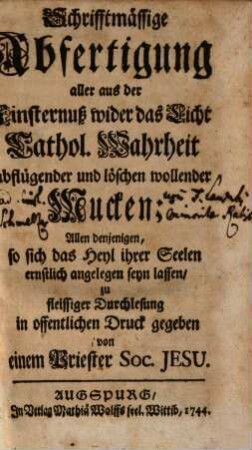 Schrifftmässige
Abfertigung
aller aus der
Finsternuß wider das Licht
Cathol. Wahrheit
abflügender und löschen wollender
Mucken;
Allen denjenigen,
so sich das Heyl ihrer Seelen
ernstlich angelegen seyn lassen/
zu
fleissiger Durchlesung
in offentlichen Druck gegeben
von
einem Priester Soc. JESU.
AUGSPURG/
In Verlag Mathiä Wolffs seel. Wittib, 1744.